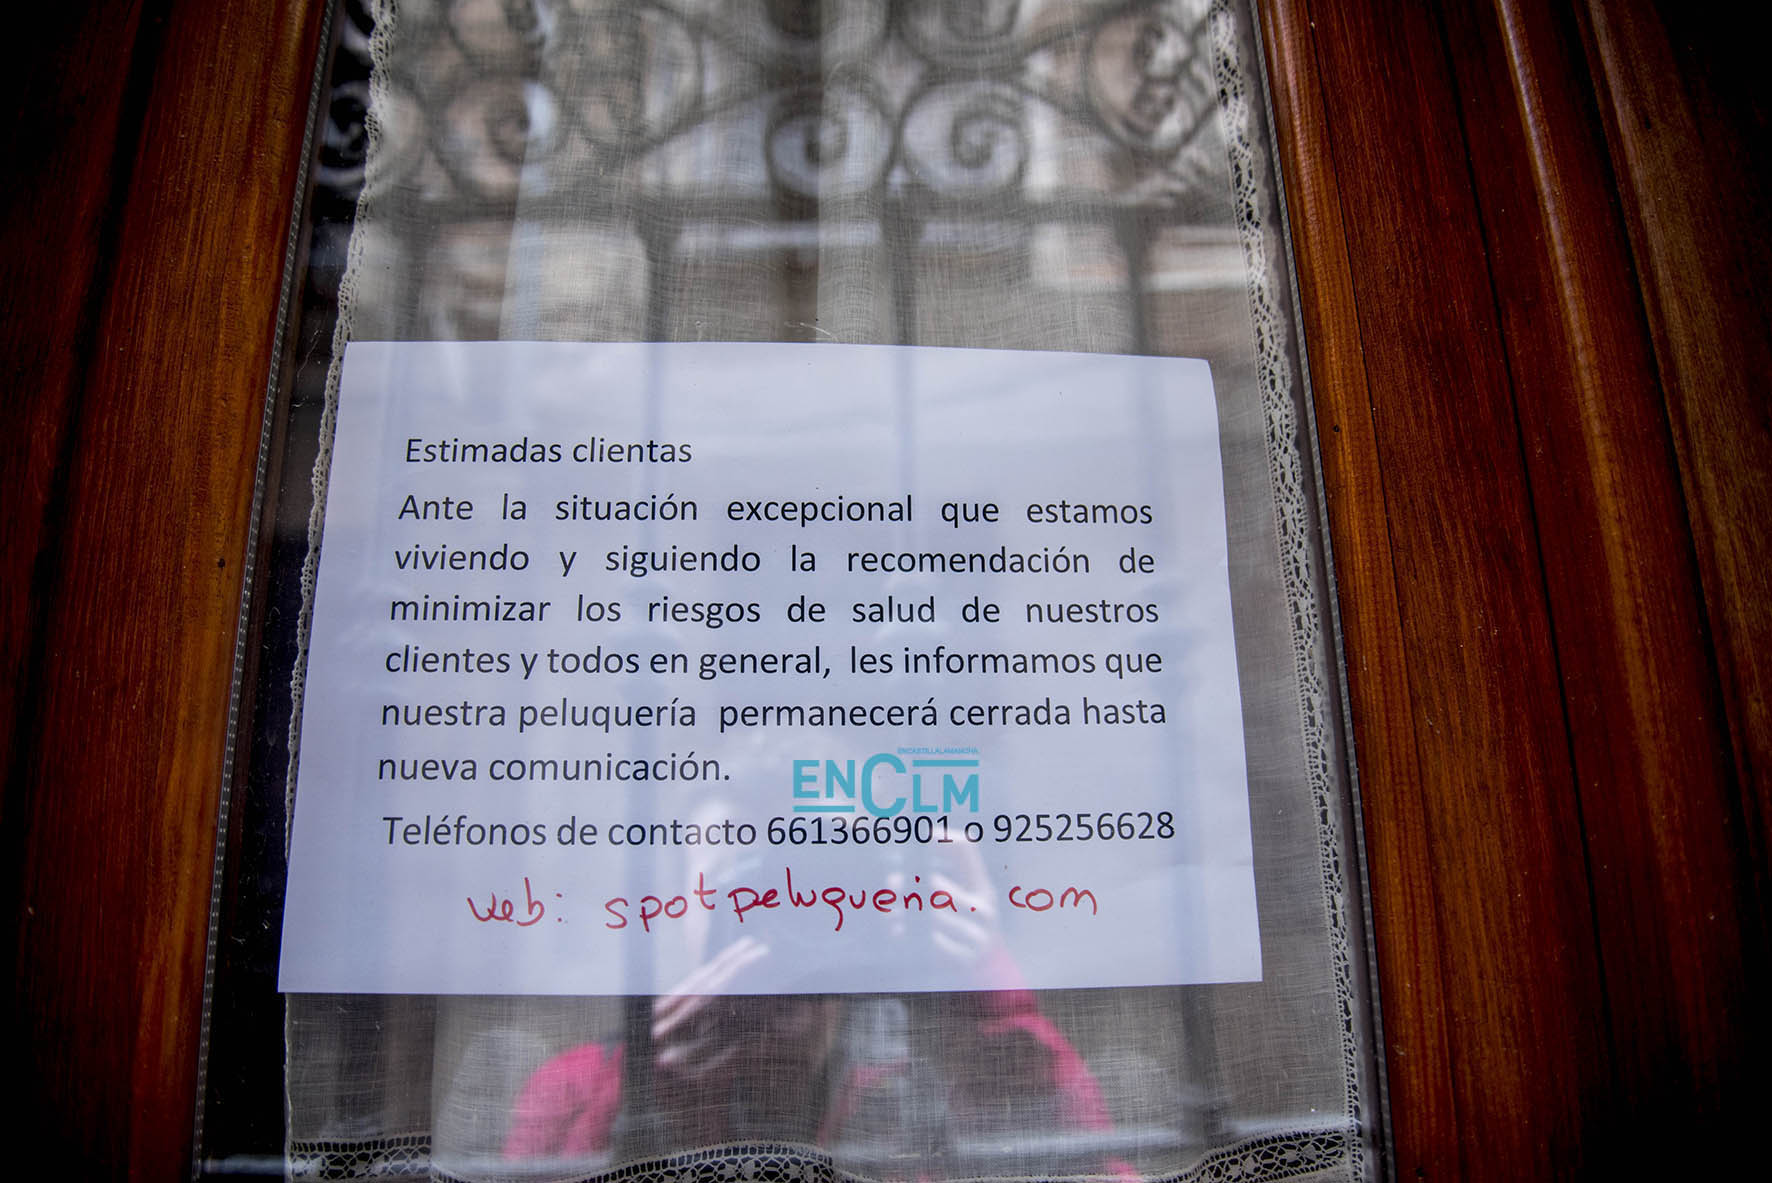 Estimadas clientas
Ante la situación excepcional que estamos
viviendo y siguiendo la recomendación de
minimizar los riesgos de salud de nuestros
clientes y todos en general, les informamos que
nuestra peluquería permanecerá cerrada hasta
nueva comunicación.
ENCASTILLALAMANCHA
ENCLM
Teléfonos de contacto 661366901 o 925256628
web: spotpeluqueria.com